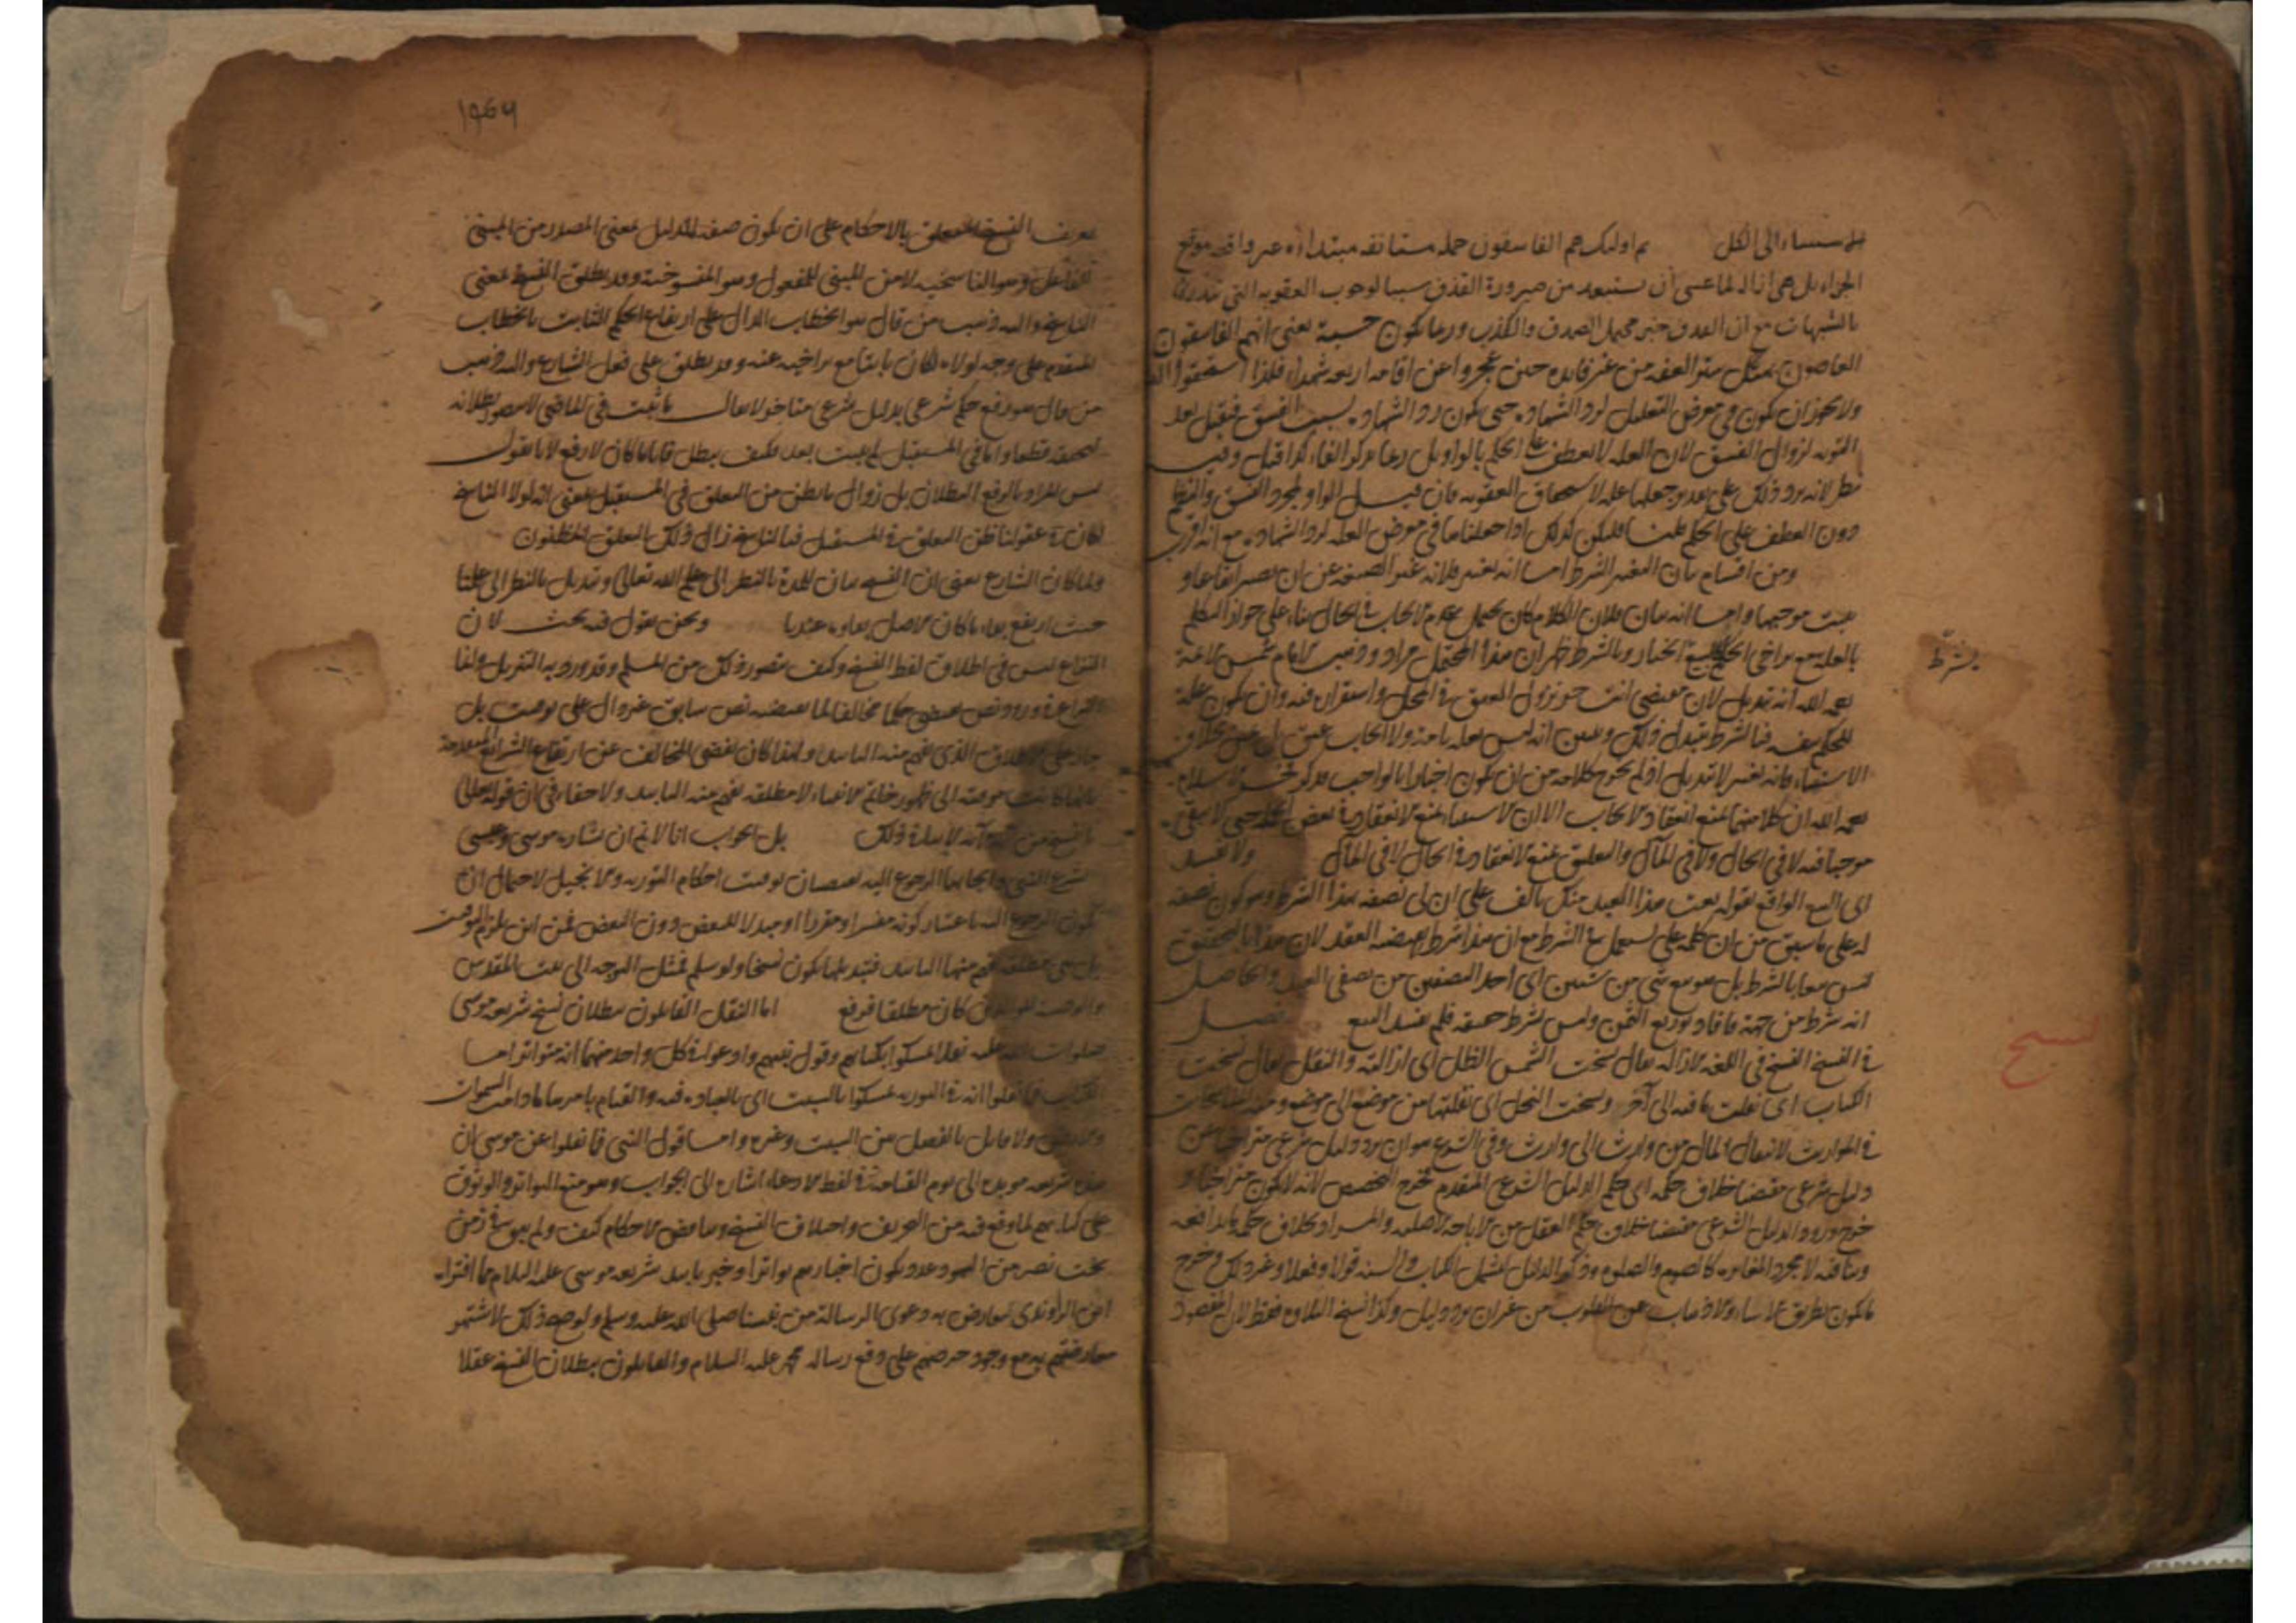 الاستثناء الى الكل ثم اولئك هم الفاسقون جملة مستانفة مبتدأة غير واقعة موقع
الجزاء بل هي ازالة لما عسى ان يستبعد من صيرورة القذف سببا لوجوب العقوبة التي تندرئ
بالشبهات مع ان القذف خبر محتمل الصدق والكذب وربما يكون حسبة يعني انهم الفاسقون
العاصون بهتك ستر العفة من غير فائدة حين عجزوا عن اقامة اربعة شهداء فلذا استحقوا
ولا يجوز ان يكون في معرض التعليل لرد الشهادة حتى يكون رد الشهادة بسبب الفسق فيقبل بعد
التوبة لزوال الفسق لان العلة لا تعطف على الحكم بالواو بل ربما يذكر الفاء كذا قيل وفيه
نظر لانه يرد ذلك على تقدير جعلها علة لاستحقاق العقوبة فان قيل الواو لمجرد النسق والنظم
دون العطف على الحكم قلنا فليكن كذلك اذا جعلناها في معرض العلة لرد الشهادة مع انه اقرب
ومن اقسام بيان التغيير الشرط اما انه تغيير فلانه غير الصيغة عن ان تصير ايقاعا و
يثبت موجبها واما انه بيان فلان الكلام كان يحتمل عدم الايجاب في الحال بناء على جواز التكلم
بالعلة مع تراخي الحكم كبيع الخيار وبالشرط ظهر ان هذا المحتمل مراد وذهب الامام شمس الائمة
رحمه الله انه تبديل لان مقتضى انت حر نزول العتق في المحل واستقراره فيه وان يكون علة
للحكم بنفسه فبالشرط تبدل ذلك وتبين انه ليس بعلة تامة ولا ايجاب عتق بل يمين بخلاف
الاستثناء فانه تغيير لا تبديل اذ لم يخرج كلامه من ان يكون اخبارا بالواجب وذكر فخر الاسلام
رحمه الله ان كلا منهما يمنع انعقاد الايجاب الا ان الاستثناء يمنع الانعقاد في بعض الجملة حتى لا يبقى
موجبا فيه لا في الحال ولا في المآل والتعليق يمنع الانعقاد في الحال لا في المآل ولا يفسد
اى البيع الواقع بقوله بعت هذا العبد منك بالف على ان لي نصفه بهذا الشرط وهو كون نصفه
له على ما سبق من ان كلمة على تستعمل في الشرط مع ان هذا شرط لا يقتضيه العقد لان هذا بالتحقيق
ليس بيعا بالشرط بل هو بيع شيء من شيئين اى احد النصفين من نصفي العبد والحاصل
انه شرط من جهة افادة توزيع الثمن وليس بشرط حقيقة فلم يفسد البيع فصل
في النسخ النسخ في اللغة الازالة يقال نسخت الشمس الظل اى ازالته والنقل يقال نسخت
الكتاب اى نقلت ما فيه الى آخر ونسخت النحل اى نقلتها من موضع الى موضع ومنه المناسخات
في المواريث لانتقال المال من وارث الى وارث وفي الشرع هو ان يرد دليل شرعي متراخيا عن
دليل شرعي مقتضيا خلاف حكمه اى حكم الدليل الشرعي المتقدم فخرج التخصيص لانه لا يكون متراخيا و
خرج ورود الدليل الشرعي مقتضيا خلاف حكم العقل من الاباحة الاصلية والمراد بخلاف حكمه ما يدافعه
وينافيه لا مجرد المغايرة كالصوم والصلوة وذكر الدليل ليشمل الكتاب والسنة قولا وفعلا وغير ذلك وخرج
ما يكون بطريق الانساء والاذهاب عن القلوب من غير ان يرد دليل وكذا نسخ التلاوة فقط لان المقصود
بشرط
نسخ
تعريف النسخ المتعلق بالاحكام على ان يكون صفة للدليل بمعنى المصدر من المبني
للفاعل وهو الناسخية لا من المبني للمفعول وهو المنسوخية وقد يطلق النسخ بمعنى
الناسخ واليه ذهب من قال هو الخطاب الدال على ارتفاع الحكم الثابت بالخطاب
المتقدم على وجه لولاه لكان ثابتا مع تراخيه عنه وقد يطلق على فعل الشارع واليه ذهب
من قال هو رفع حكم شرعي بدليل شرعي متاخر لا يقال ما ثبت في الماضي لا يتصور بطلانه
لتحققه قطعا وما في المستقبل لم يثبت بعد فكيف يبطل فايا ما كان لا رفع لانا نقول
ليس المراد بالرفع البطلان بل زوال ما يظن من التعلق في المستقبل بمعنى انه لولا الناسخ
لكان في عقولنا ظن التعلق في المستقبل فبالناسخ زال ذلك التعلق المظنون
ولما كان الشارع يعني ان النسخ بيان للمدة بالنظر الى علم الله تعالى وتبديل بالنظر الى علمنا
حيث ارتفع بقاء ما كان الاصل بقاؤه عندنا ونحن نقول فيه بحث لان
النزاع ليس في اطلاق لفظ النسخ وكيف يتصور ذلك من المسلم وقد ورد به التنزيل وانما
النزاع في ورود نص يقتضي حكما مخالفا لما يقتضيه نص سابق غير دال على توقيت بل
جار على الاطلاق الذي يفهم منه التابيد ولهذا كان تقضي المخالف عن ارتفاع الشرائع المتقدمة
بانها كانت موقتة الى ظهور خاتم الانبياء لا مطلقة يفهم منه التابيد ولا خفاء في ان قوله تعالى
ما ننسخ من آية لا ينافي ذلك بل الجواب انا لا نم ان بشارة موسى وعيسى
بشرع النبي وايجابهما الرجوع اليه يقتضيان توقيت احكام التورية والانجيل لاحتمال ان
يكون الرجوع اليه باعتبار كونه مفسرا او مقررا او مبدلا للبعض دون البعض فمن اين يلزم التوقيت
بل هي مطلقة يفهم منها التابيد فتبديلها يكون نسخا ولو سلم فمثل التوجه الى بيت المقدس
والوصية للوالدين كان مطلقا فرفع اما النقل القائلون ببطلان نسخ شريعة موسى
صلوات الله عليه نقلا تمسكوا بكتابهم وقول نبيهم وادعوا في كل واحد منهما انه متواتر اما
الكتاب فما نقلوا انه في التورية تمسكوا بالسبت اى بالعبادة فيه والقيام بامرها ما دامت السموات
والارض ولا قائل بالفصل بين السبت وغيره واما قول النبي فما نقلوا عن موسى ان
هذه شريعة مؤبدة الى يوم القيامة في لفظ الادعاء اشارة الى الجواب وهو منع التواتر والوثوق
على كتابهم لما وقع فيه من التحريف واختلاف النسخ وتناقض الاحكام كيف ولم يبق في زمن
بخت نصر من اليهود عدد يكون اخبارهم تواترا وخبر تابيد شريعة موسى عليه السلام مما افتراه
ابن الراوندي ليعارض به دعوى الرسالة من نبينا صلى الله عليه وسلم ولو صح ذلك لاشتهر
معارضتهم به مع وجود حرصهم على دفع رسالة محمد عليه السلام والقائلون ببطلان النسخ عقلا